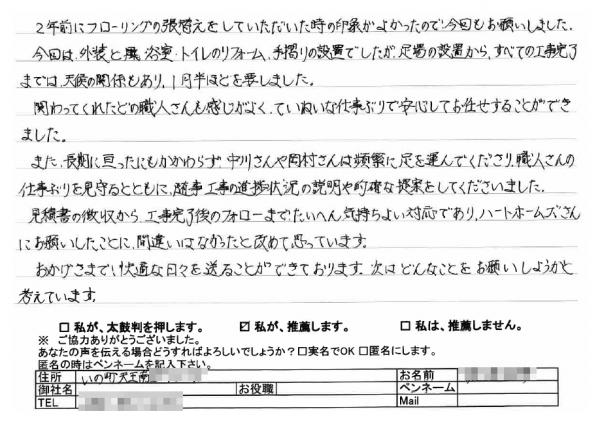 2年前にフローリングの張替えをしていただいた時の印象がよかったので今回もお願いしました。
今回は、外装と風、浴室・トイレのリフォーム、手摺りの設置でしたが、足場の設置から、すべての工事完了
までは、天候の関係もあり、1月半ほどを要しました。
関わってくれたどの職人さんも感じがよく、ていねいな仕事ぶりで安心してお任せすることができ
ました。
また、長期に亘ったにもかかわらず、中川さんや岡村さんは頻繁に足を運んでくださり、職人さんの
仕事ぶりを見守るとともに、随時工事の進捗状況の説明や的確な提案をしてくださいました。
見積書の徴収から、工事完了後のフォローまで、たいへん気持ちよい対応であり、ハートホームズさん
にお願いしたことに、間違いはなかったと改めて思っています。
おかげさまで、快適な日々を送ることができております。次はどんなことをお願いしようかと
考えています。
□ 私が、太鼓判を押します。 ☑ 私が、推薦します。 □ 私は、推薦しません。
※ ご協力ありがとうございました。
あなたの声を伝える場合どうすればよろしいでしょうか?□実名でOK □匿名にします。
匿名の時はペンネームを記入下さい。
住所 いの町天王南 お名前
御社名 お役職 ペンネーム
TEL Mail